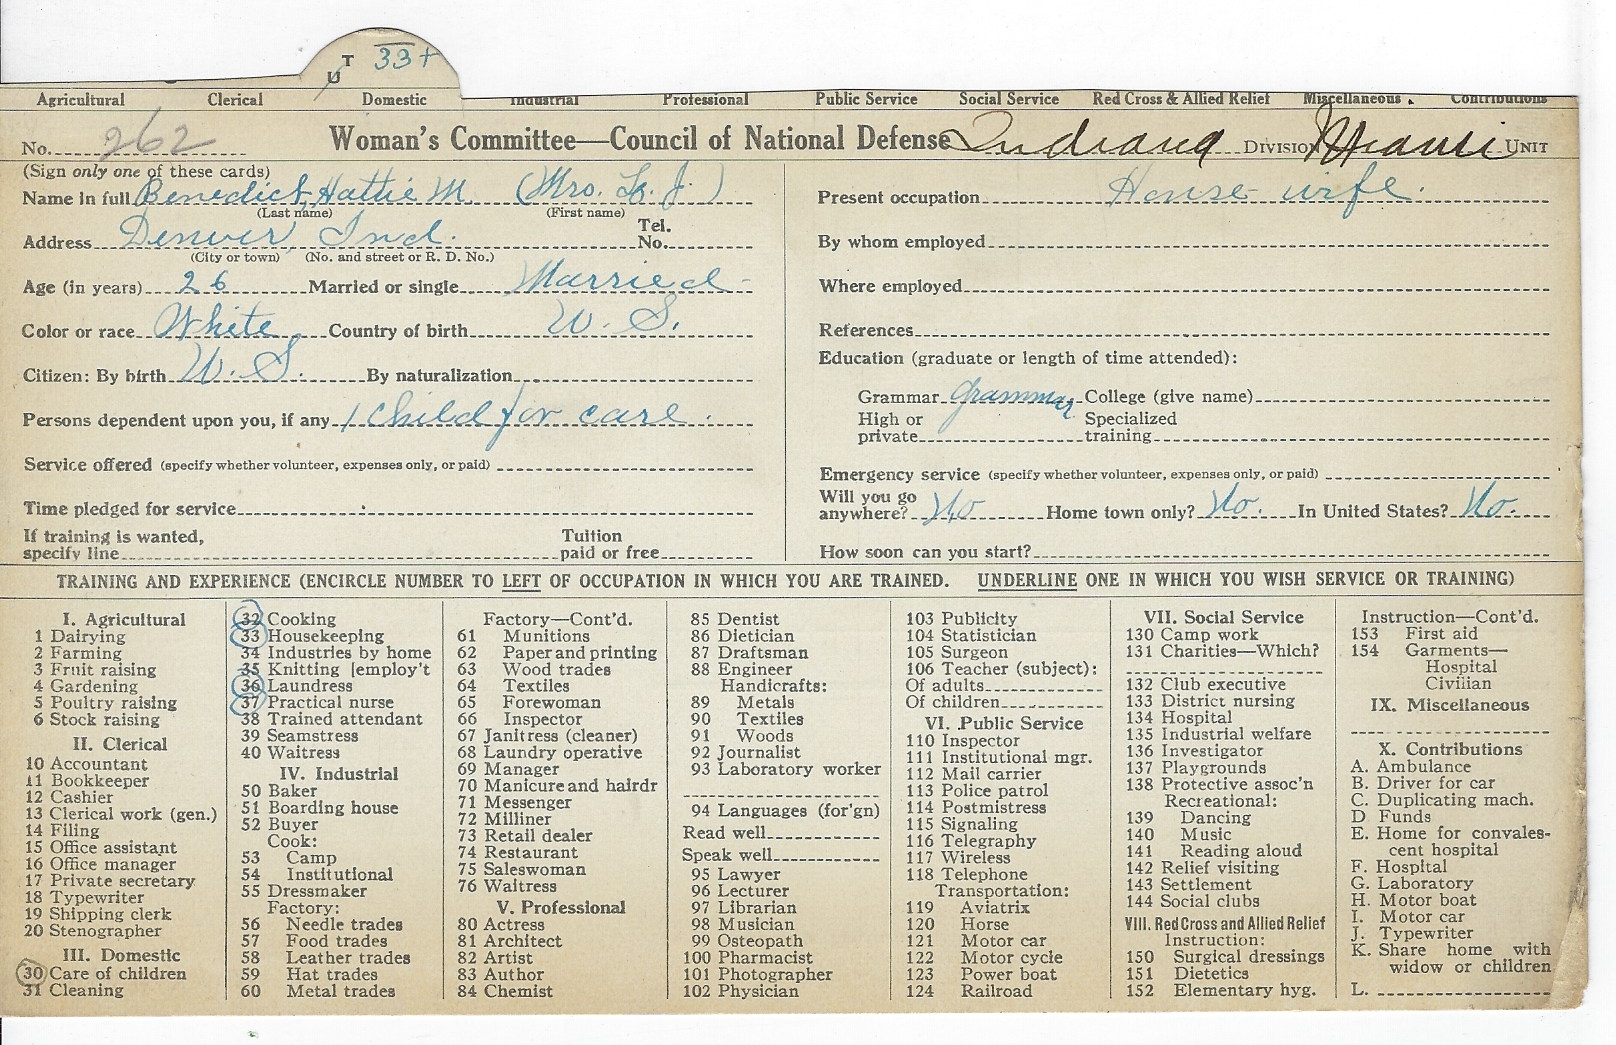 U T 33+
Agricultural Clerical Domestic Industrial Professional Public Service Social Service Red Cross & Allied Relief Miscellaneous Contributions
No. 262 Woman's Committee—Council of National Defense Indiana DIVISION Miami UNIT
(Sign only one of these cards)
Name in full Benedict, Hattie M. (Mrs. L. J.)
(Last name) (First name)
Address Denver, Ind. Tel. No.
(City or town) (No. and street or R. D. No.)
Age (in years) 26 Married or single Married
Color or race White Country of birth U. S.
Citizen: By birth U. S. By naturalization
Persons dependent upon you, if any 1 Child for care.
Service offered (specify whether volunteer, expenses only, or paid)
Time pledged for service
If training is wanted, specify line Tuition paid or free
Present occupation House wife.
By whom employed
Where employed
References
Education (graduate or length of time attended):
Grammar grammar College (give name)
High or private Specialized training
Emergency service (specify whether volunteer, expenses only, or paid)
Will you go anywhere? No Home town only? No. In United States? No.
How soon can you start?
TRAINING AND EXPERIENCE (ENCIRCLE NUMBER TO LEFT OF OCCUPATION IN WHICH YOU ARE TRAINED. UNDERLINE ONE IN WHICH YOU WISH SERVICE OR TRAINING)
I. Agricultural
1 Dairying
2 Farming
3 Fruit raising
4 Gardening
5 Poultry raising
6 Stock raising
II. Clerical
10 Accountant
11 Bookkeeper
12 Cashier
13 Clerical work (gen.)
14 Filing
15 Office assistant
16 Office manager
17 Private secretary
18 Typewriter
19 Shipping clerk
20 Stenographer
III. Domestic
30 Care of children
31 Cleaning
32 Cooking
33 Housekeeping
34 Industries by home
35 Knitting [employ't
36 Laundress
37 Practical nurse
38 Trained attendant
39 Seamstress
40 Waitress
IV. Industrial
50 Baker
51 Boarding house
52 Buyer
Cook:
53 Camp
54 Institutional
55 Dressmaker
Factory:
56 Needle trades
57 Food trades
58 Leather trades
59 Hat trades
60 Metal trades
Factory—Cont'd.
61 Munitions
62 Paper and printing
63 Wood trades
64 Textiles
65 Forewoman
66 Inspector
67 Janitress (cleaner)
68 Laundry operative
69 Manager
70 Manicure and hairdr
71 Messenger
72 Milliner
73 Retail dealer
74 Restaurant
75 Saleswoman
76 Waitress
V. Professional
80 Actress
81 Architect
82 Artist
83 Author
84 Chemist
85 Dentist
86 Dietician
87 Draftsman
88 Engineer
Handicrafts:
89 Metals
90 Textiles
91 Woods
92 Journalist
93 Laboratory worker
94 Languages (for'gn)
Read well
Speak well
95 Lawyer
96 Lecturer
97 Librarian
98 Musician
99 Osteopath
100 Pharmacist
101 Photographer
102 Physician
103 Publicity
104 Statistician
105 Surgeon
106 Teacher (subject):
Of adults
Of children
VI. Public Service
110 Inspector
111 Institutional mgr.
112 Mail carrier
113 Police patrol
114 Postmistress
115 Signaling
116 Telegraphy
117 Wireless
118 Telephone
Transportation:
119 Aviatrix
120 Horse
121 Motor car
122 Motor cycle
123 Power boat
124 Railroad
VII. Social Service
130 Camp work
131 Charities—Which?
132 Club executive
133 District nursing
134 Hospital
135 Industrial welfare
136 Investigator
137 Playgrounds
138 Protective assoc'n
Recreational:
139 Dancing
140 Music
141 Reading aloud
142 Relief visiting
143 Settlement
144 Social clubs
VIII. Red Cross and Allied Relief
Instruction:
150 Surgical dressings
151 Dietetics
152 Elementary hyg.
Instruction—Cont'd.
153 First aid
154 Garments—
Hospital
Civilian
IX. Miscellaneous
X. Contributions
A. Ambulance
B. Driver for car
C. Duplicating mach.
D Funds
E. Home for convales-
cent hospital
F. Hospital
G. Laboratory
H. Motor boat
I. Motor car
J. Typewriter
K. Share home with
widow or children
L.